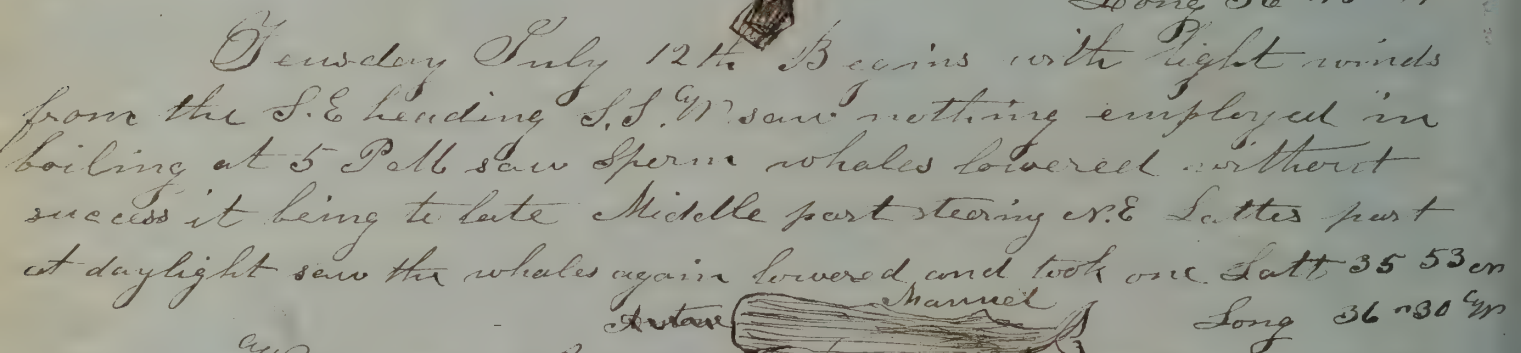 Teusday July 12th Begins with light winds
from the S.E heading S.S.W saw nothing employed in
boiling at 5 P.M. saw Sperm whales lowered without
success it being to late Middle part steering N.E Latter part
at daylight saw the whales again lowered and took one Latt 35 53 N
Manuel
Long 36 " 30 W